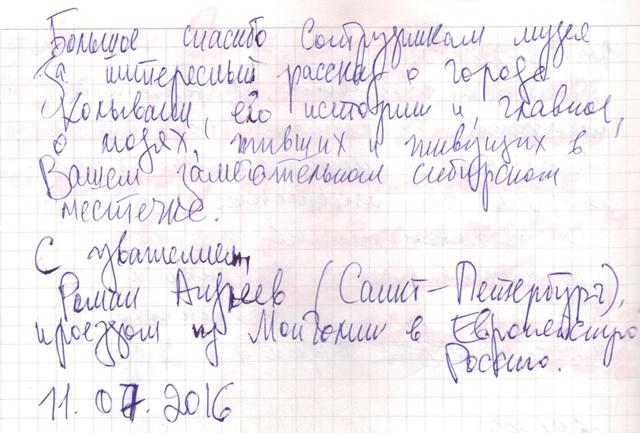 Большое спасибо сотрудникам музея
за интересный рассказ о городе
Колывани, его истории и, главное,
о людях, живших и живущих в
Вашем замечательном сибирском
местечке.
С уважением,
Роман Андреев (Санкт-Петербург),
проездом из Монголии в Европейскую
Россию.
11.07.2016